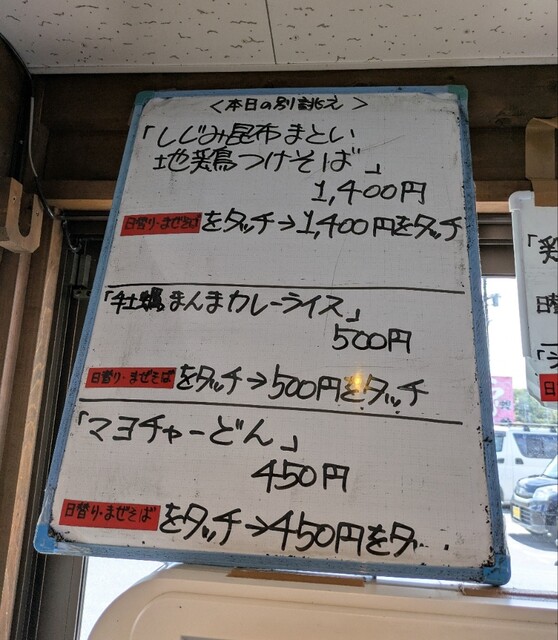 ＜本日の別誂え＞
「しじみ昆布まとい
地鶏つけそば」
1,400円
日替り・まぜそばをタッチ→1,400円をタッチ
「牡蠣まんまカレーライス」
500円
日替り・まぜそばをタッチ→500円をタッチ
「マヨチャーどん」
450円
日替り・まぜそばをタッチ→450円をタ